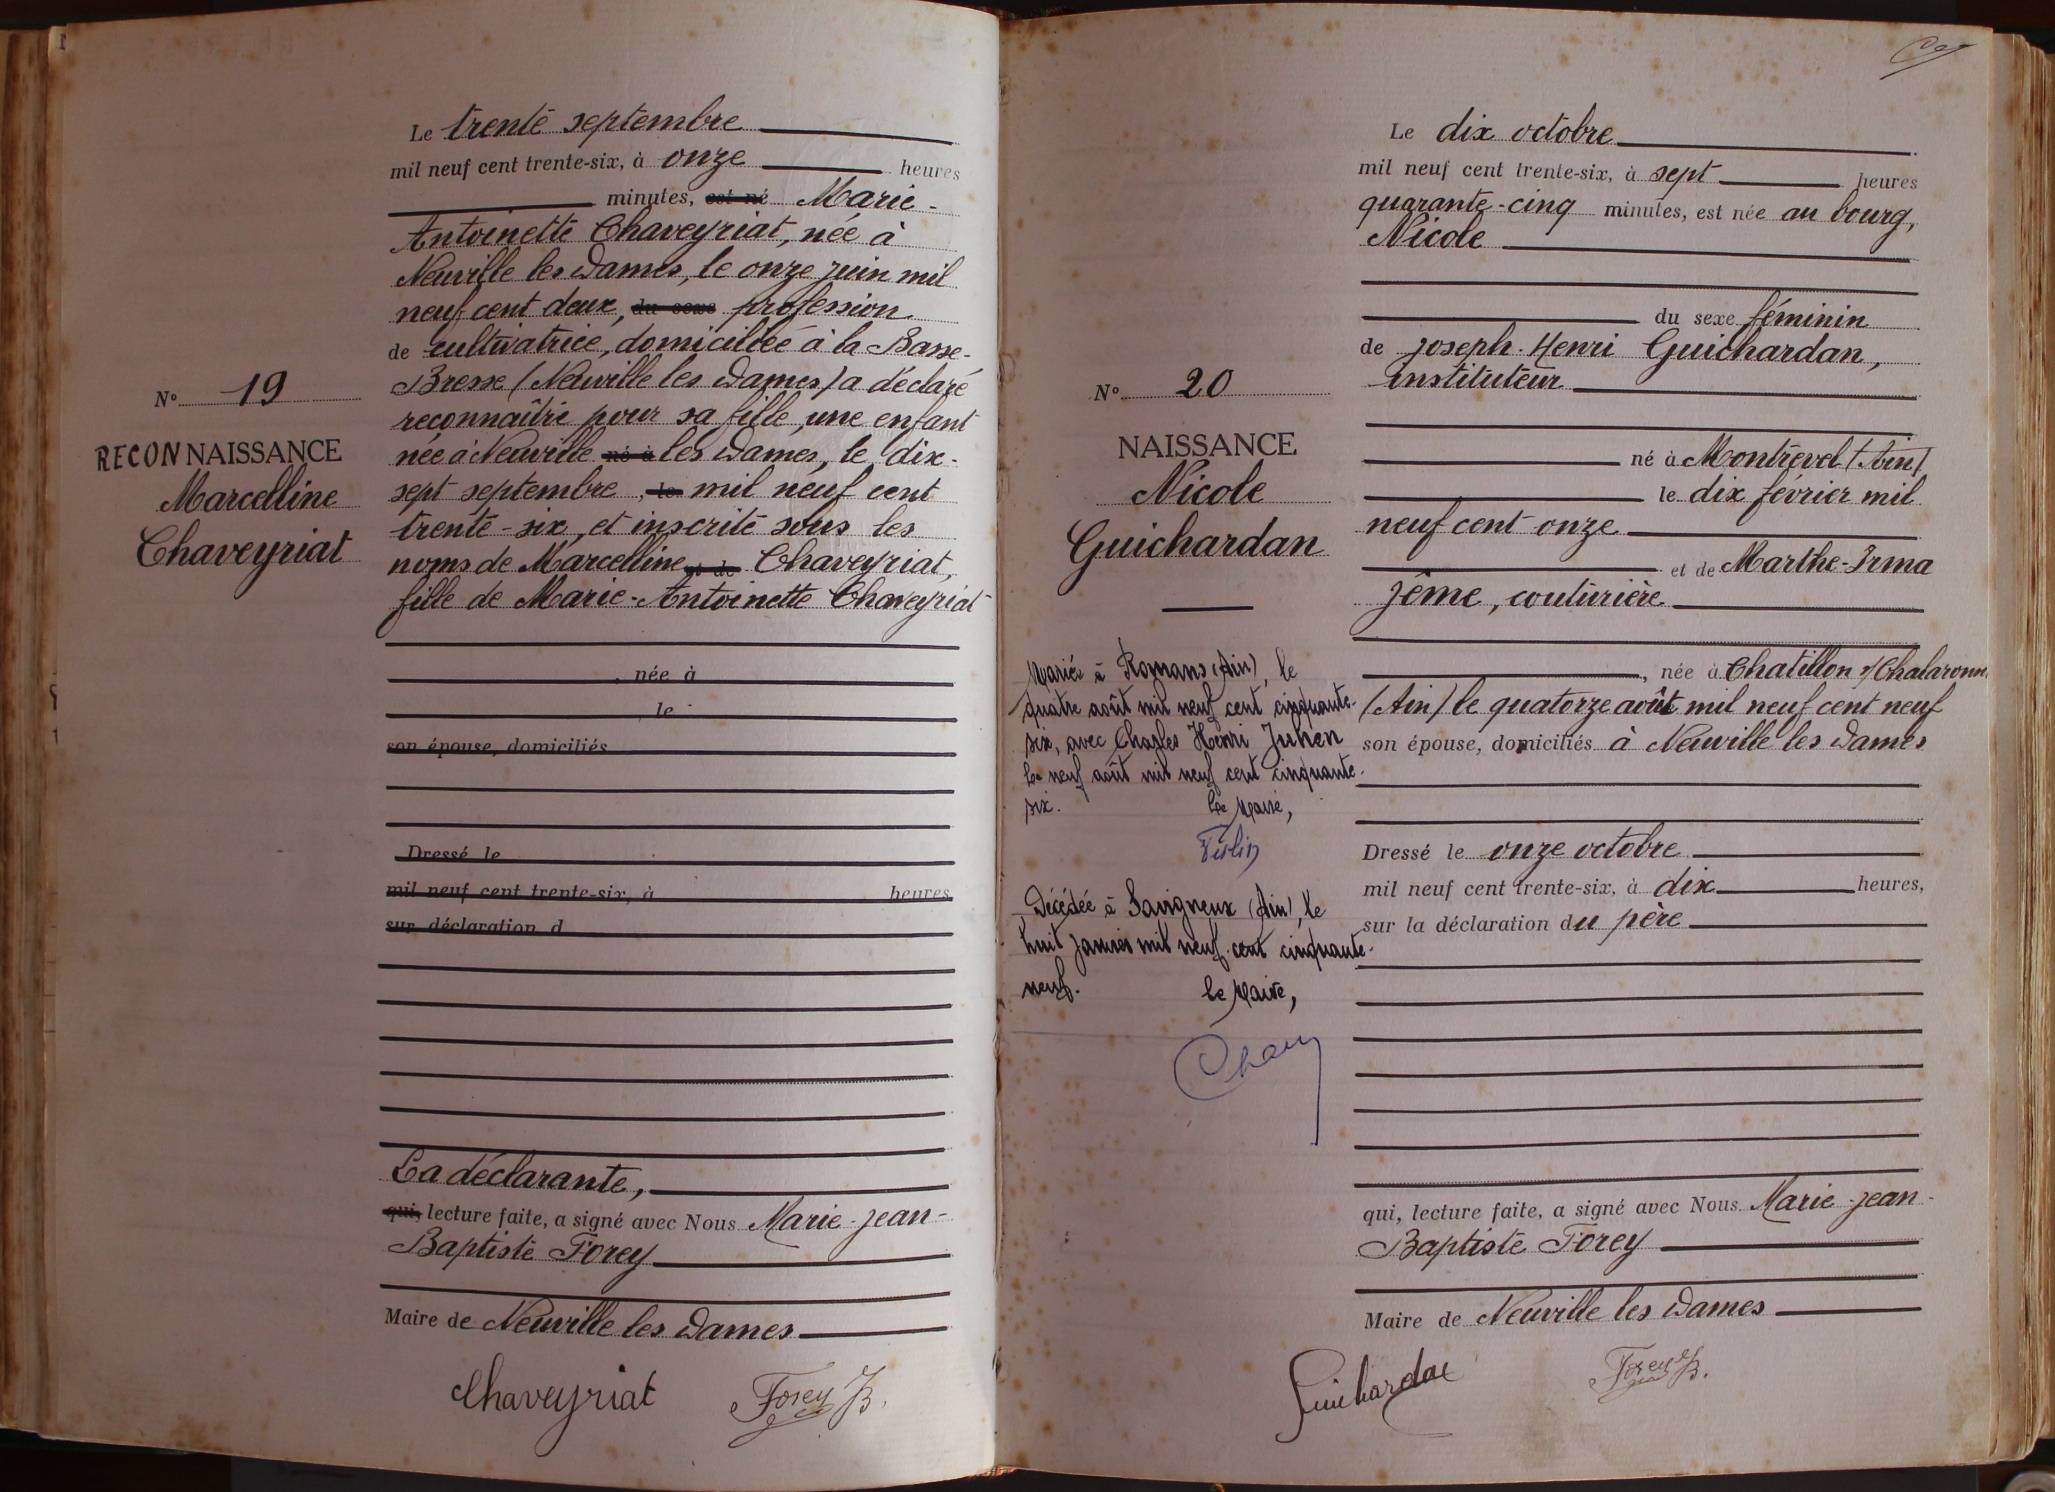 Le trente septembre
mil neuf cent trente-six, à onze heures
minutes, est né Marie-
Antoinette Chaveyriat, née à
Neuville les Dames, le onze juin mil
neuf cent deux, du sexe profession
de cultivatrice, domiciliée à la Basse-
Bresse (Neuville les Dames) a déclaré
reconnaître pour sa fille, une enfant
née à Neuville né à les Dames, le dix-
sept septembre, le mil neuf cent
trente-six, et inscrite sous les
noms de Marcelline et de Chaveyriat,
fille de Marie-Antoinette Chaveyriat
, née à
le
son épouse, domiciliés
Dressé le
mil neuf cent trente-six, à heures
sur déclaration d
La déclarante,
qui, lecture faite, a signé avec Nous Marie-Jean-
Baptiste Forey
Maire de Neuville les Dames
Chaveyriat Forey JB.
No 19
RECONNAISSANCE
Marcelline
Chaveyriat
Le dix octobre
mil neuf cent trente-six, à sept heures
quarante-cinq minutes, est née au bourg,
Nicole
du sexe féminin
de Joseph-Henri Guichardan,
instituteur
né à Montrevel (Ain)
le dix février mil
neuf cent onze
et de Marthe-Irma
Jême, couturière
, née à Chatillon s/Chalaronne
(Ain) le quatorze août mil neuf cent neuf
son épouse, domiciliés à Neuville les Dames
Dressé le onze octobre
mil neuf cent trente-six, à dix heures,
sur la déclaration du père
qui, lecture faite, a signé avec Nous Marie-Jean-
Baptiste Forey
Maire de Neuville les Dames
Guichardan Forey JB.
No 20
NAISSANCE
Nicole
Guichardan
Mariée à Romans (Ain), le
quatre août mil neuf cent cinquante-
six, avec Charles Henri Juhen
Le neuf août mil neuf cent cinquante-
six. Le Maire,
Décédée à Savigneux (Ain), le
huit janvier mil neuf cent cinquante-
neuf. Le Maire,